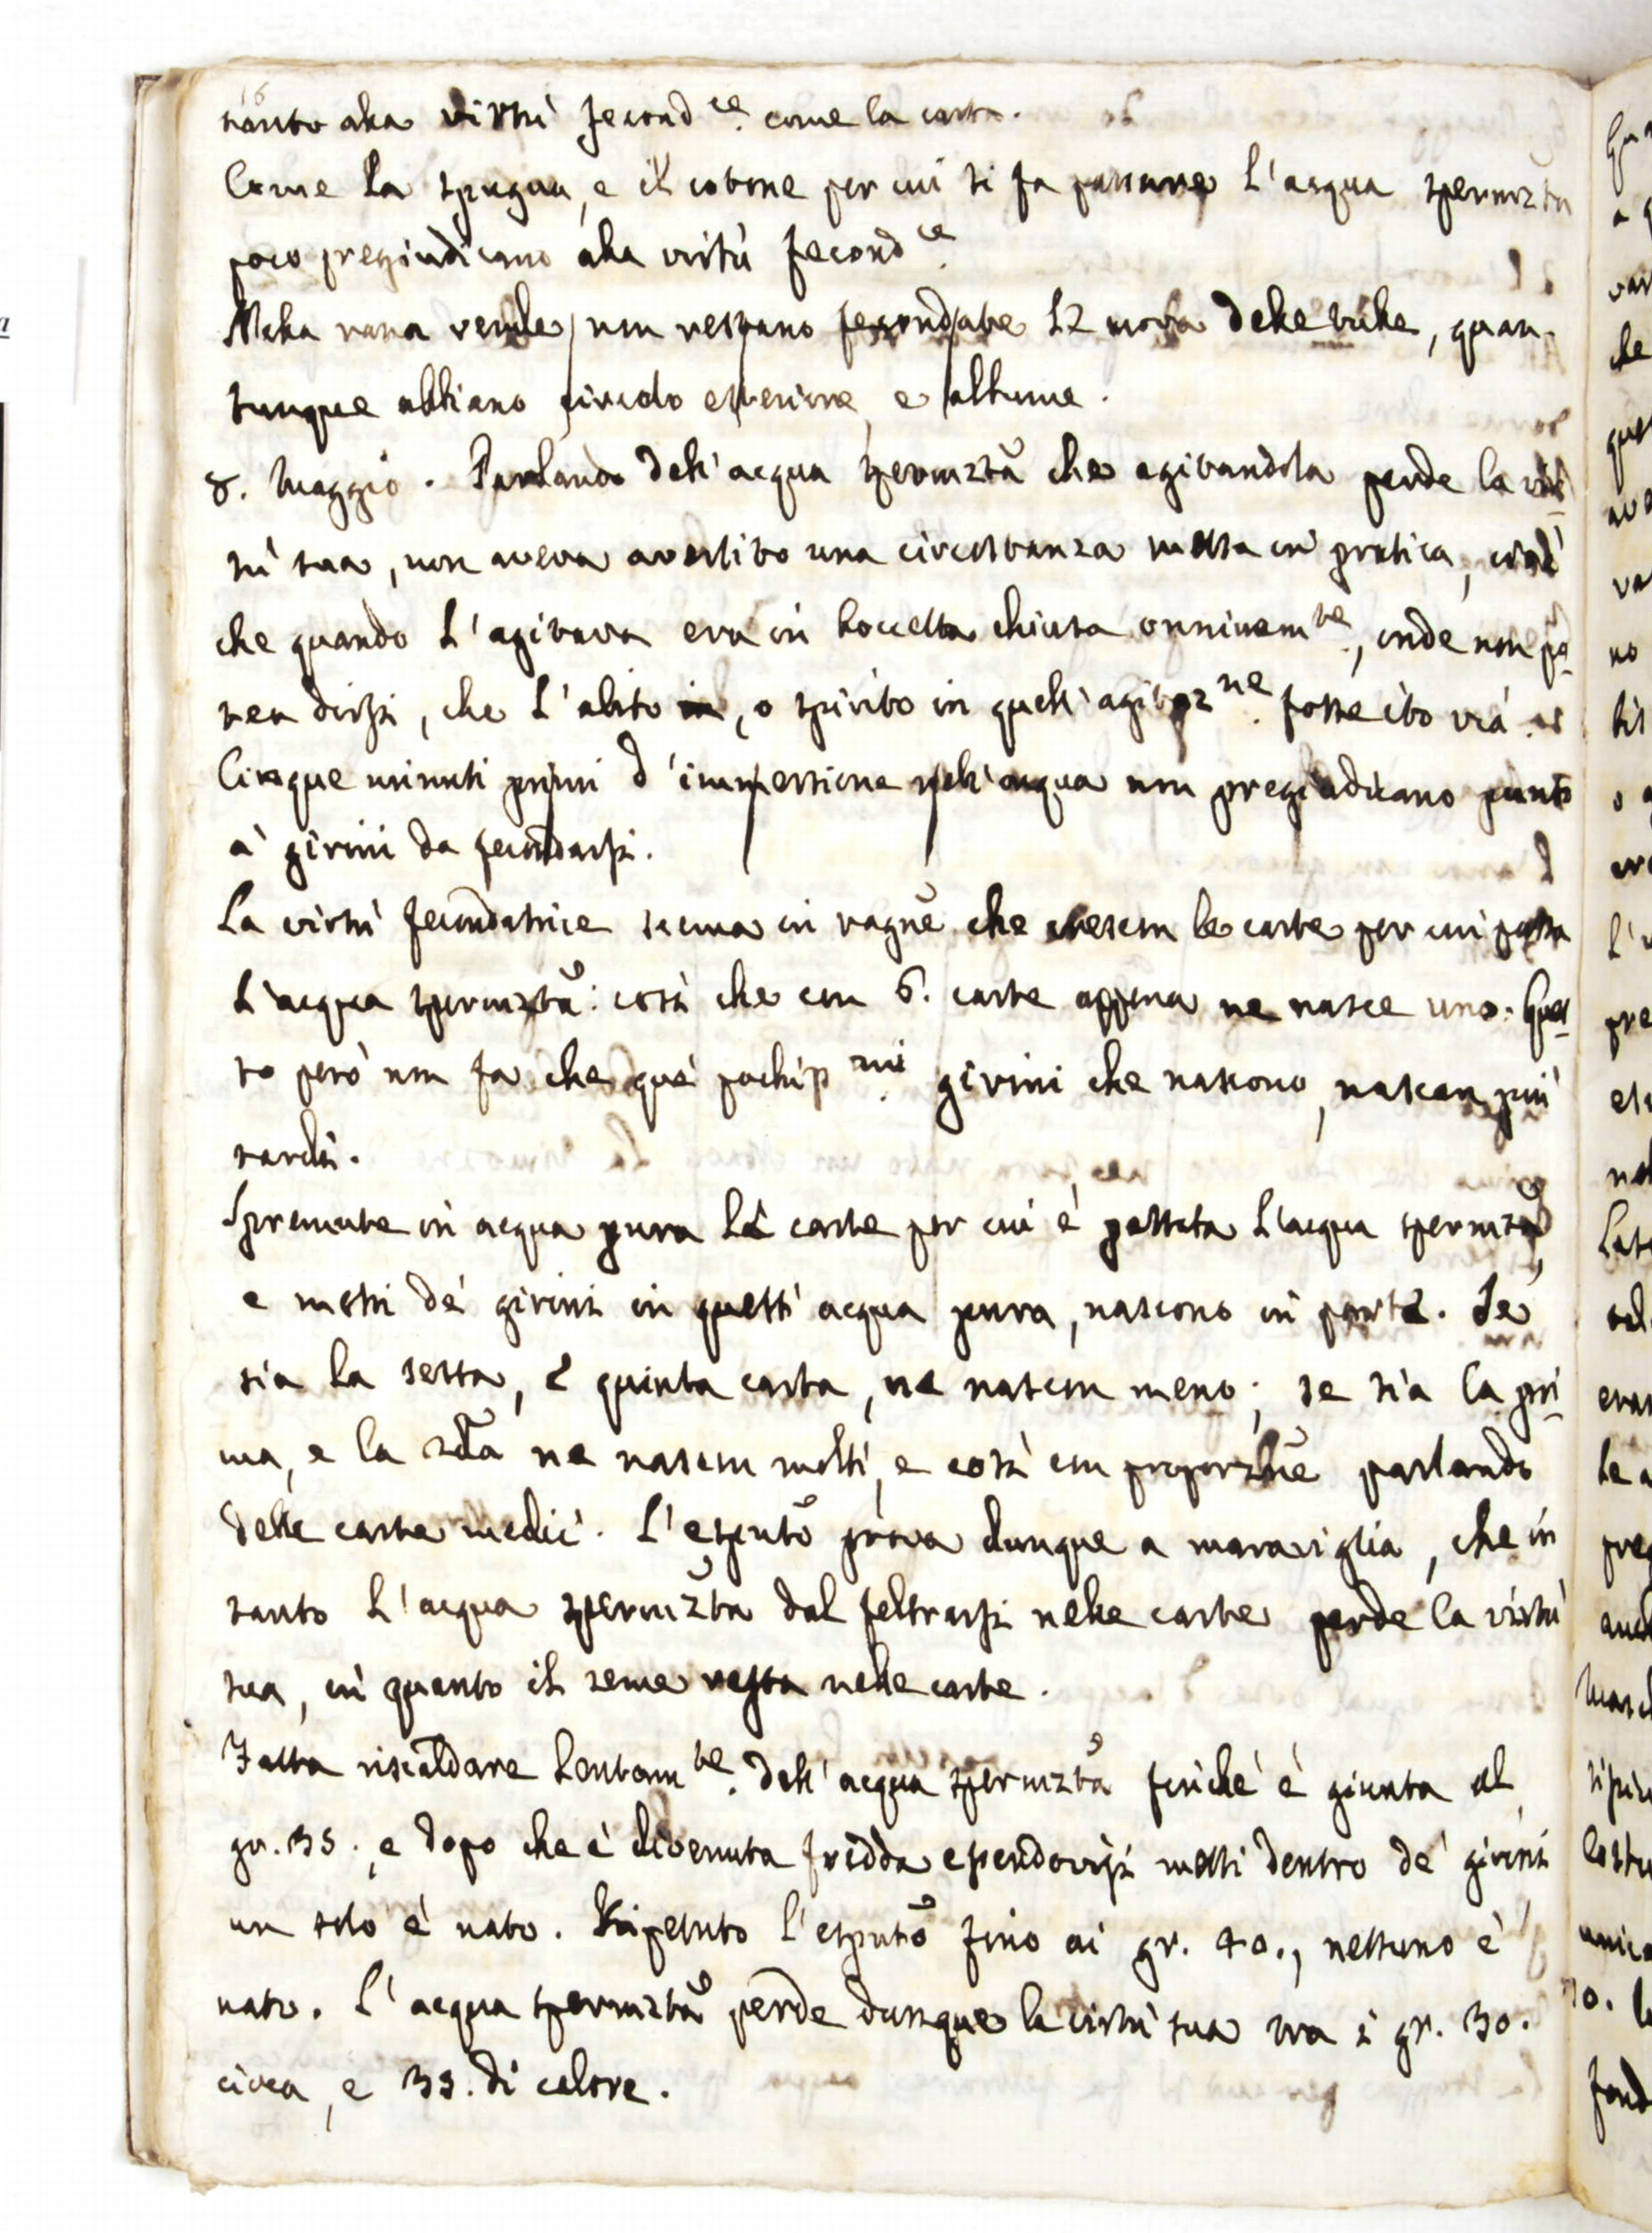 tanto alla virtù fecond.ce come la carta.
Come la spugna, e il cotone per cui si fa passare l'acqua spermzta
poco pregiudicano alla virtù fecond.ce
Nella rana verde non restano fecondate le uova delle tube, quan-
tunque abbiano circolo esteriore, e albume.
8. Maggio. Parlando dell'acqua spermzta che agitandola perde la vir-
tù sua, non aveva avertito una circostanza messa in pratica, cioè
che quando l'agitava era in boccetta chiusa onninam.te, onde non po-
tea dirsi, che l'alito, o spirito in quell'agitaz.ne fosse ito via.
Cinque minuti primi d'immersione nell'acqua non pregiudicano punto
a' girini da fecondarsi.
La virtù fecondatrice scema in ragne che crescon le carte per cui passa
l'acqua spermzta: così che con 6. carte appena ne nasce uno. Ques-
to però non fa che que' pochiss.mi girini che nascono, nascan più
tardi.
Spremute in acqua pura le carte per cui è passata l'acqua spermzta,
e messi de' girini in quest'acqua pura, nascono in parte. Se
sia la sesta, e quinta carta, ne nascon meno; se sia la pri-
ma, e la 2da ne nascon molti, e così con proporzne parlando
delle carte medie. L'esputo prova dunque a maraviglia, che in
tanto l'acqua spermzta dal feltrarsi nelle carte perde la virtù
sua, in quanto il seme resta nelle carte.
Fatta riscaldare lentam.te dell'acqua spermzta finché è giunta al
gr. 35., e dopo che è divenuta fredda essendovisi messi dentro de' girini
un solo è nato. Ripetuto l'esputo fino ai gr. 40., nessuno è
nato. L'acqua spermzta perde dunque la virtù sua tra i gr. 30.
circa, e 35. di calore.